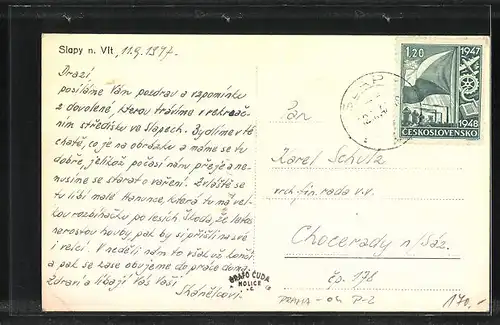 Slapy n. Vlt. 11.9.1947.
Drazí,
posíláme Vám pozdrav a vzpomínku
z dovolené, kterou trávíme v rekreač-
ním středisku ve Slapech. Bydlíme v té
chatě, co je na obrázku a máme se tu
dobře, jelikož počasí nám přeje a ne-
musíme se starat o vaření. Zvláště se
tu líbí malé Hanince, která tu má vel-
kou rozbíhačku po lesích. Škoda, že letos
nerostou houby, pak by si přišli na své
i velcí. V neděli nám to však už končí
a pak se zase obujeme do práce doma.
Zdraví a líbají Vás Vaši
1.20
1947
1948
ČESKOSLOVENSKO
Pan
Karel Schulz
vrch. fin. rada v.v.
Chocerady n/Sáz.
čp. 178
GRAFO ČUDA
HOLICE
PRAHA-04 P-2
170.-